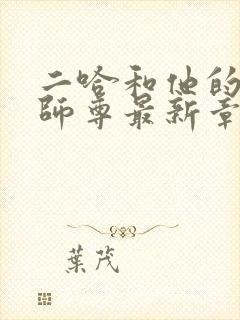 二哈和他的
師尊最新章
葉茂